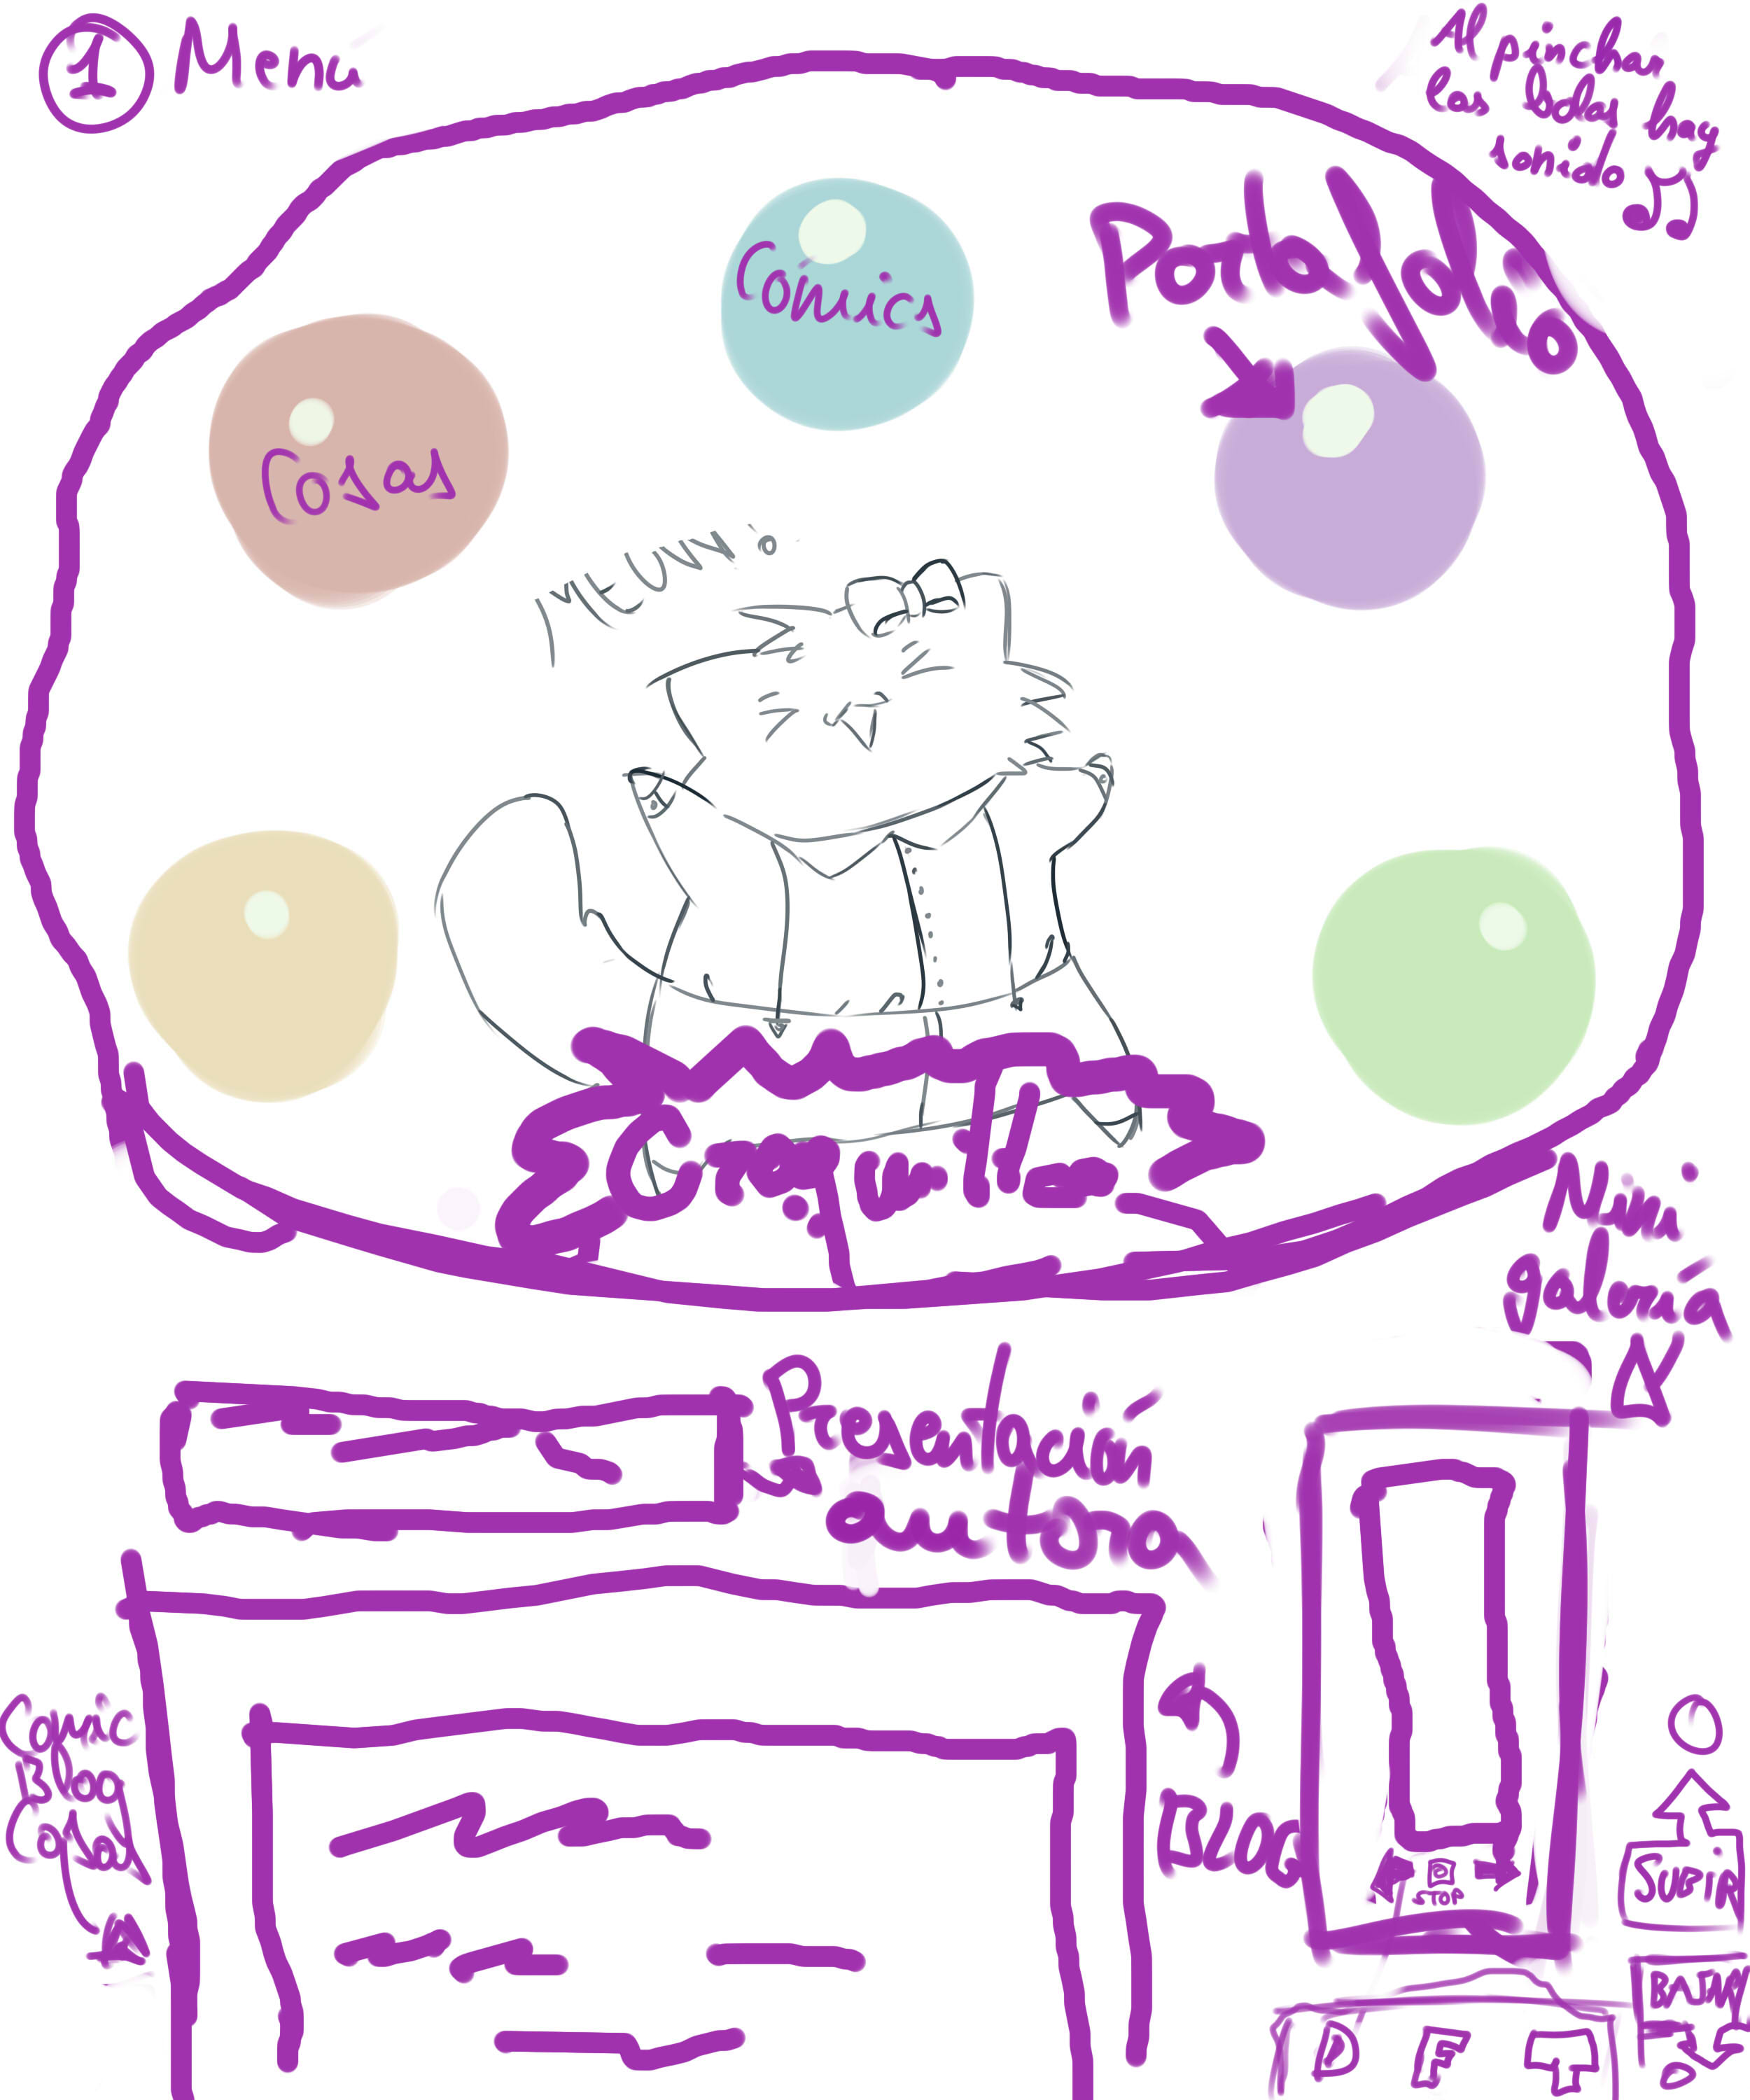 1 Menú
Al pinchar
las bolas hay
sonido ♫
Portafolio
Cómics
Cosas
MEUW!
Mini
galería
Presentación
autora
Comic
Blog
Cosas
BLOG
STOP
SUBIR
BAJAR
D F T